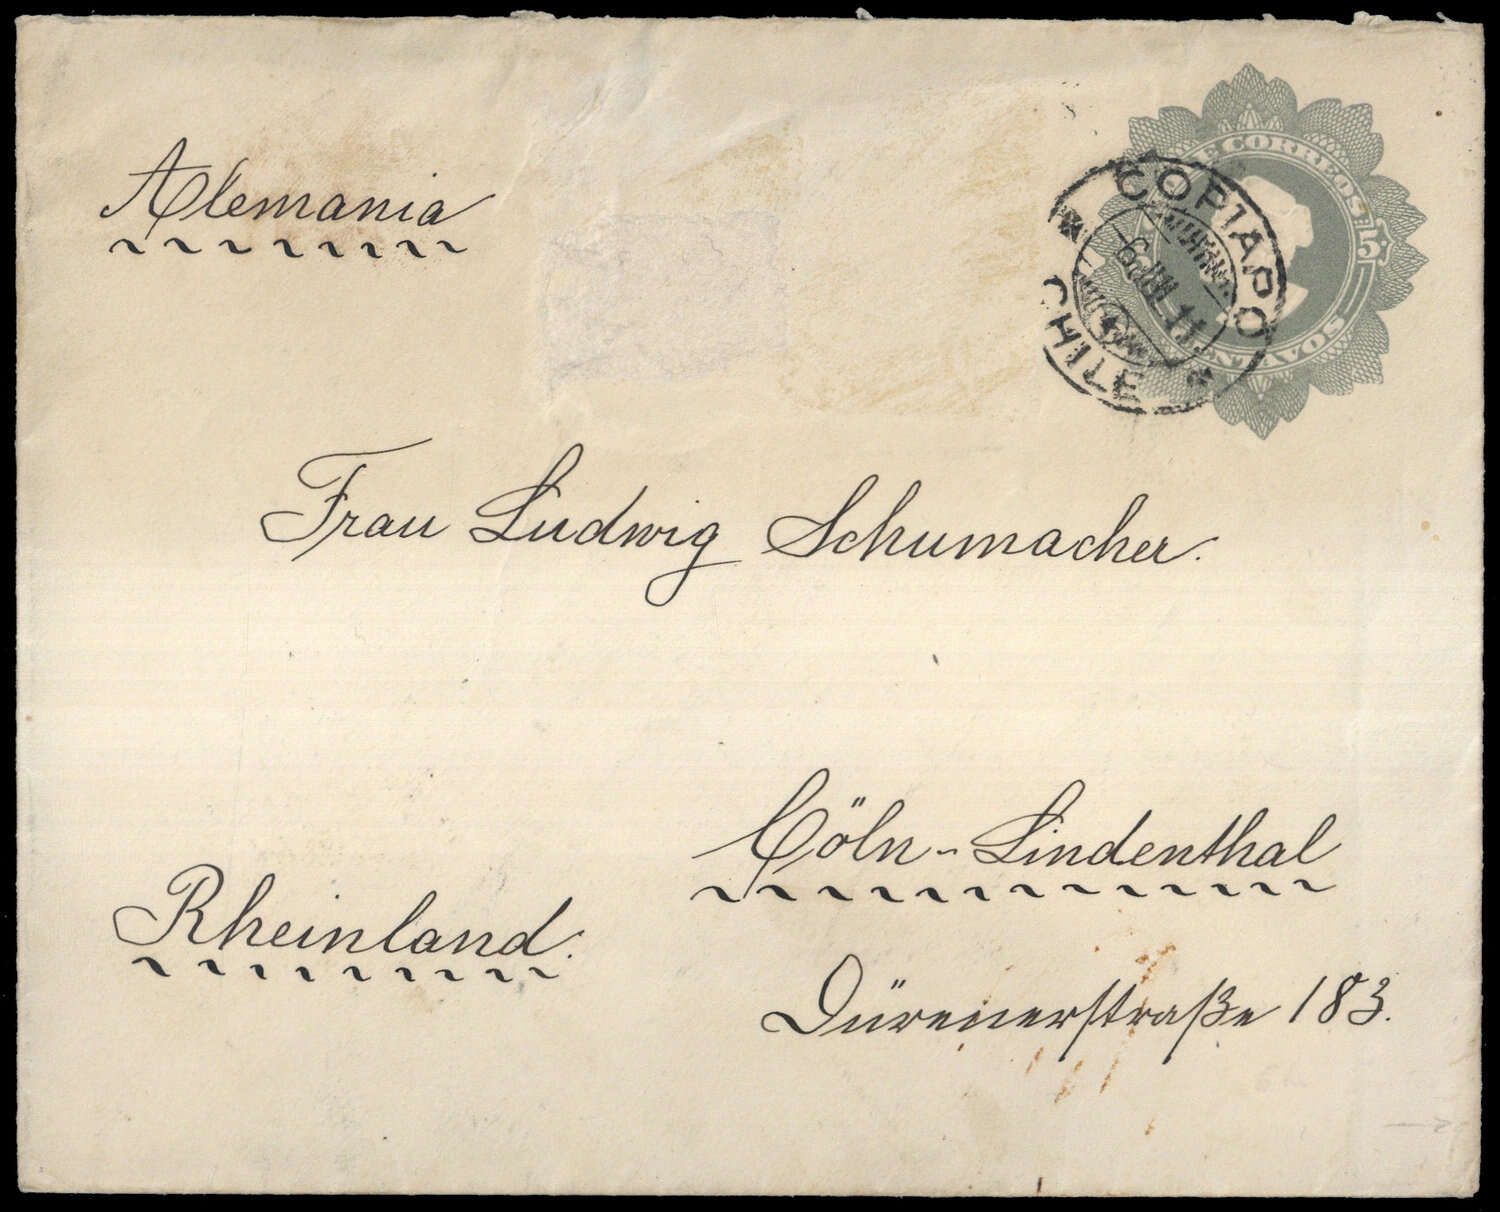 Alemania
DE CORREOS 15
CENTAVOS
COPIAPO
6 JUL 11
CHILE
Frau Ludwig Schumacher.
Cöln-Lindenthal
Rheinland.
Dürenerstraße 183.